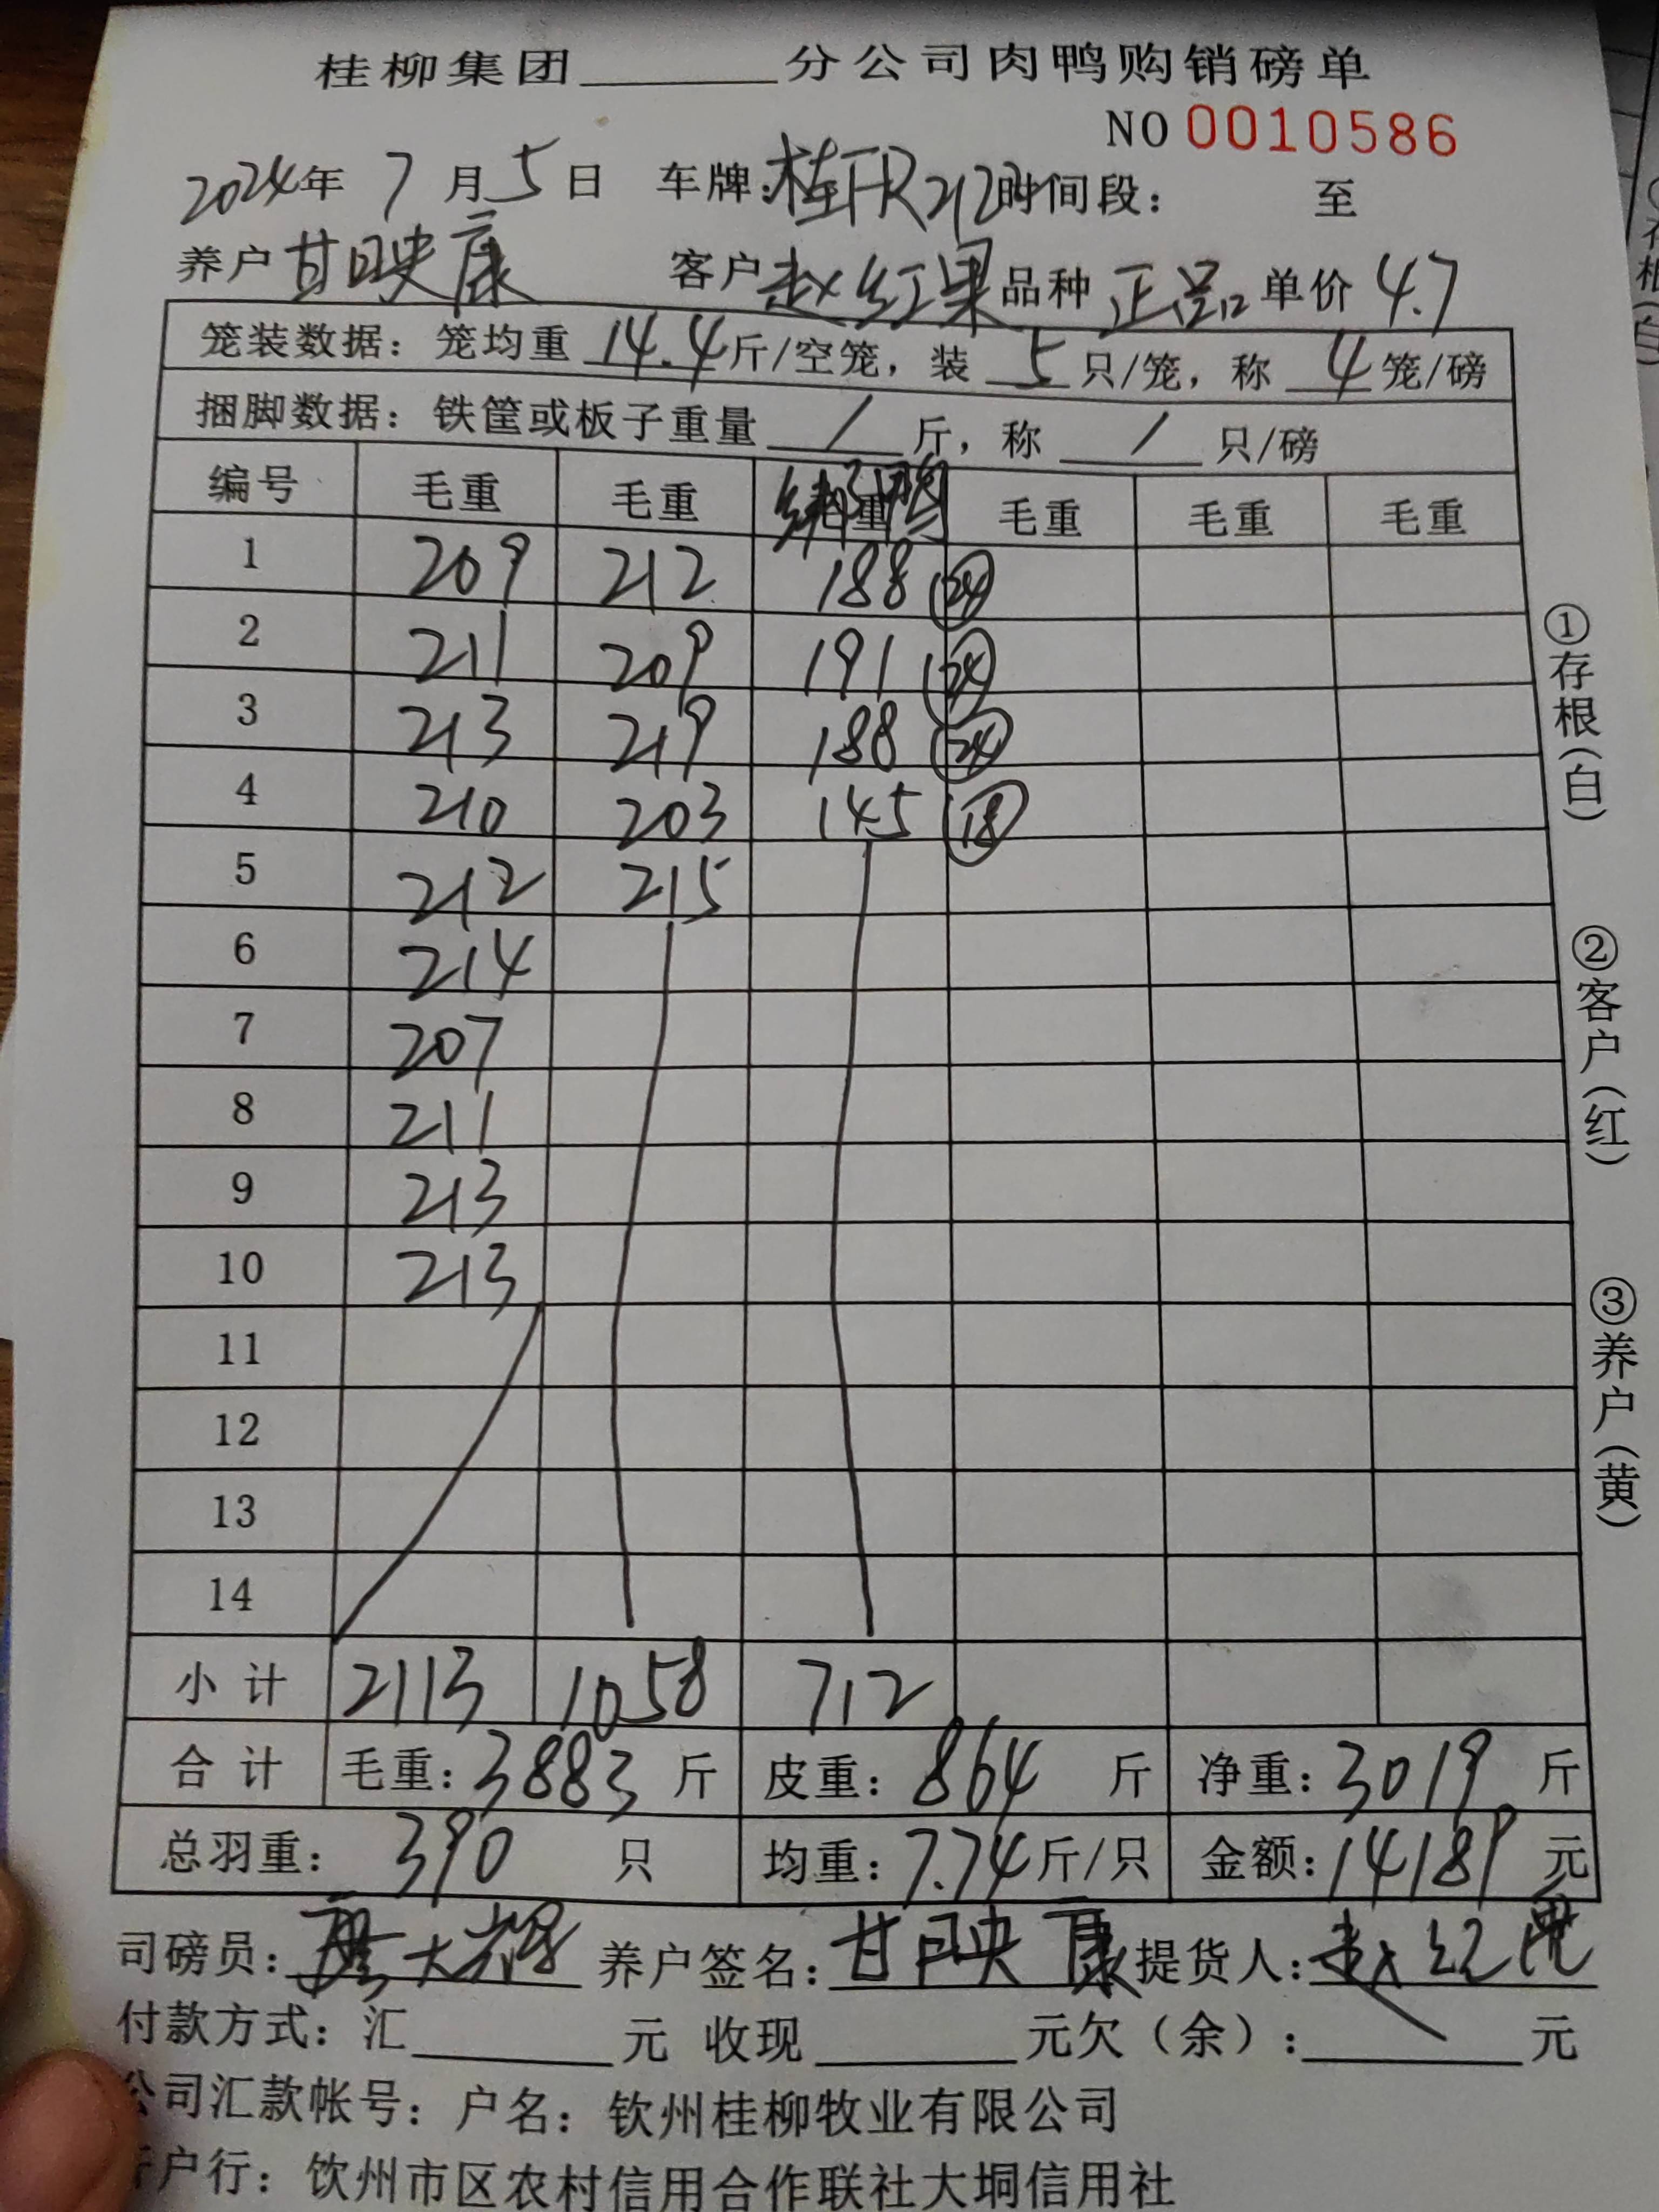 桂柳集团________分公司肉鸭购销磅单
NO 0010586
2024年 7月5日 车牌:桂FR212 时间段: 至
养户 甘映康 客户 赵红果 品种 正品 单价 4.7
笼装数据: 笼均重 14.4 斤/空笼, 装 5 只/笼, 称 4 笼/磅
捆脚数据: 铁筐或板子重量 / 斤, 称 / 只/磅
编号 毛重 毛重 毛重 毛重 毛重 毛重
1 209 212 188 (24)
2 211 209 191 (24)
3 213 219 188 (24)
4 210 203 145 (18)
5 212 215
6 214
7 207
8 211
9 213
10 213
11
12
13
14
小计 2113 1058 712
合计 毛重: 3883 斤 皮重: 864 斤 净重: 3019 斤
总羽重: 390 只 均重: 7.74 斤/只 金额: 14189 元
司磅员: 大辉 养户签名: 甘映康 提货人: 赵红果
付款方式: 汇________元 收现________元欠(余):________元
公司汇款帐号: 户名: 钦州桂柳牧业有限公司
户行: 钦州市区农村信用合作联社大垌信用社
①存根(白)
②客户(红)
③养户(黄)